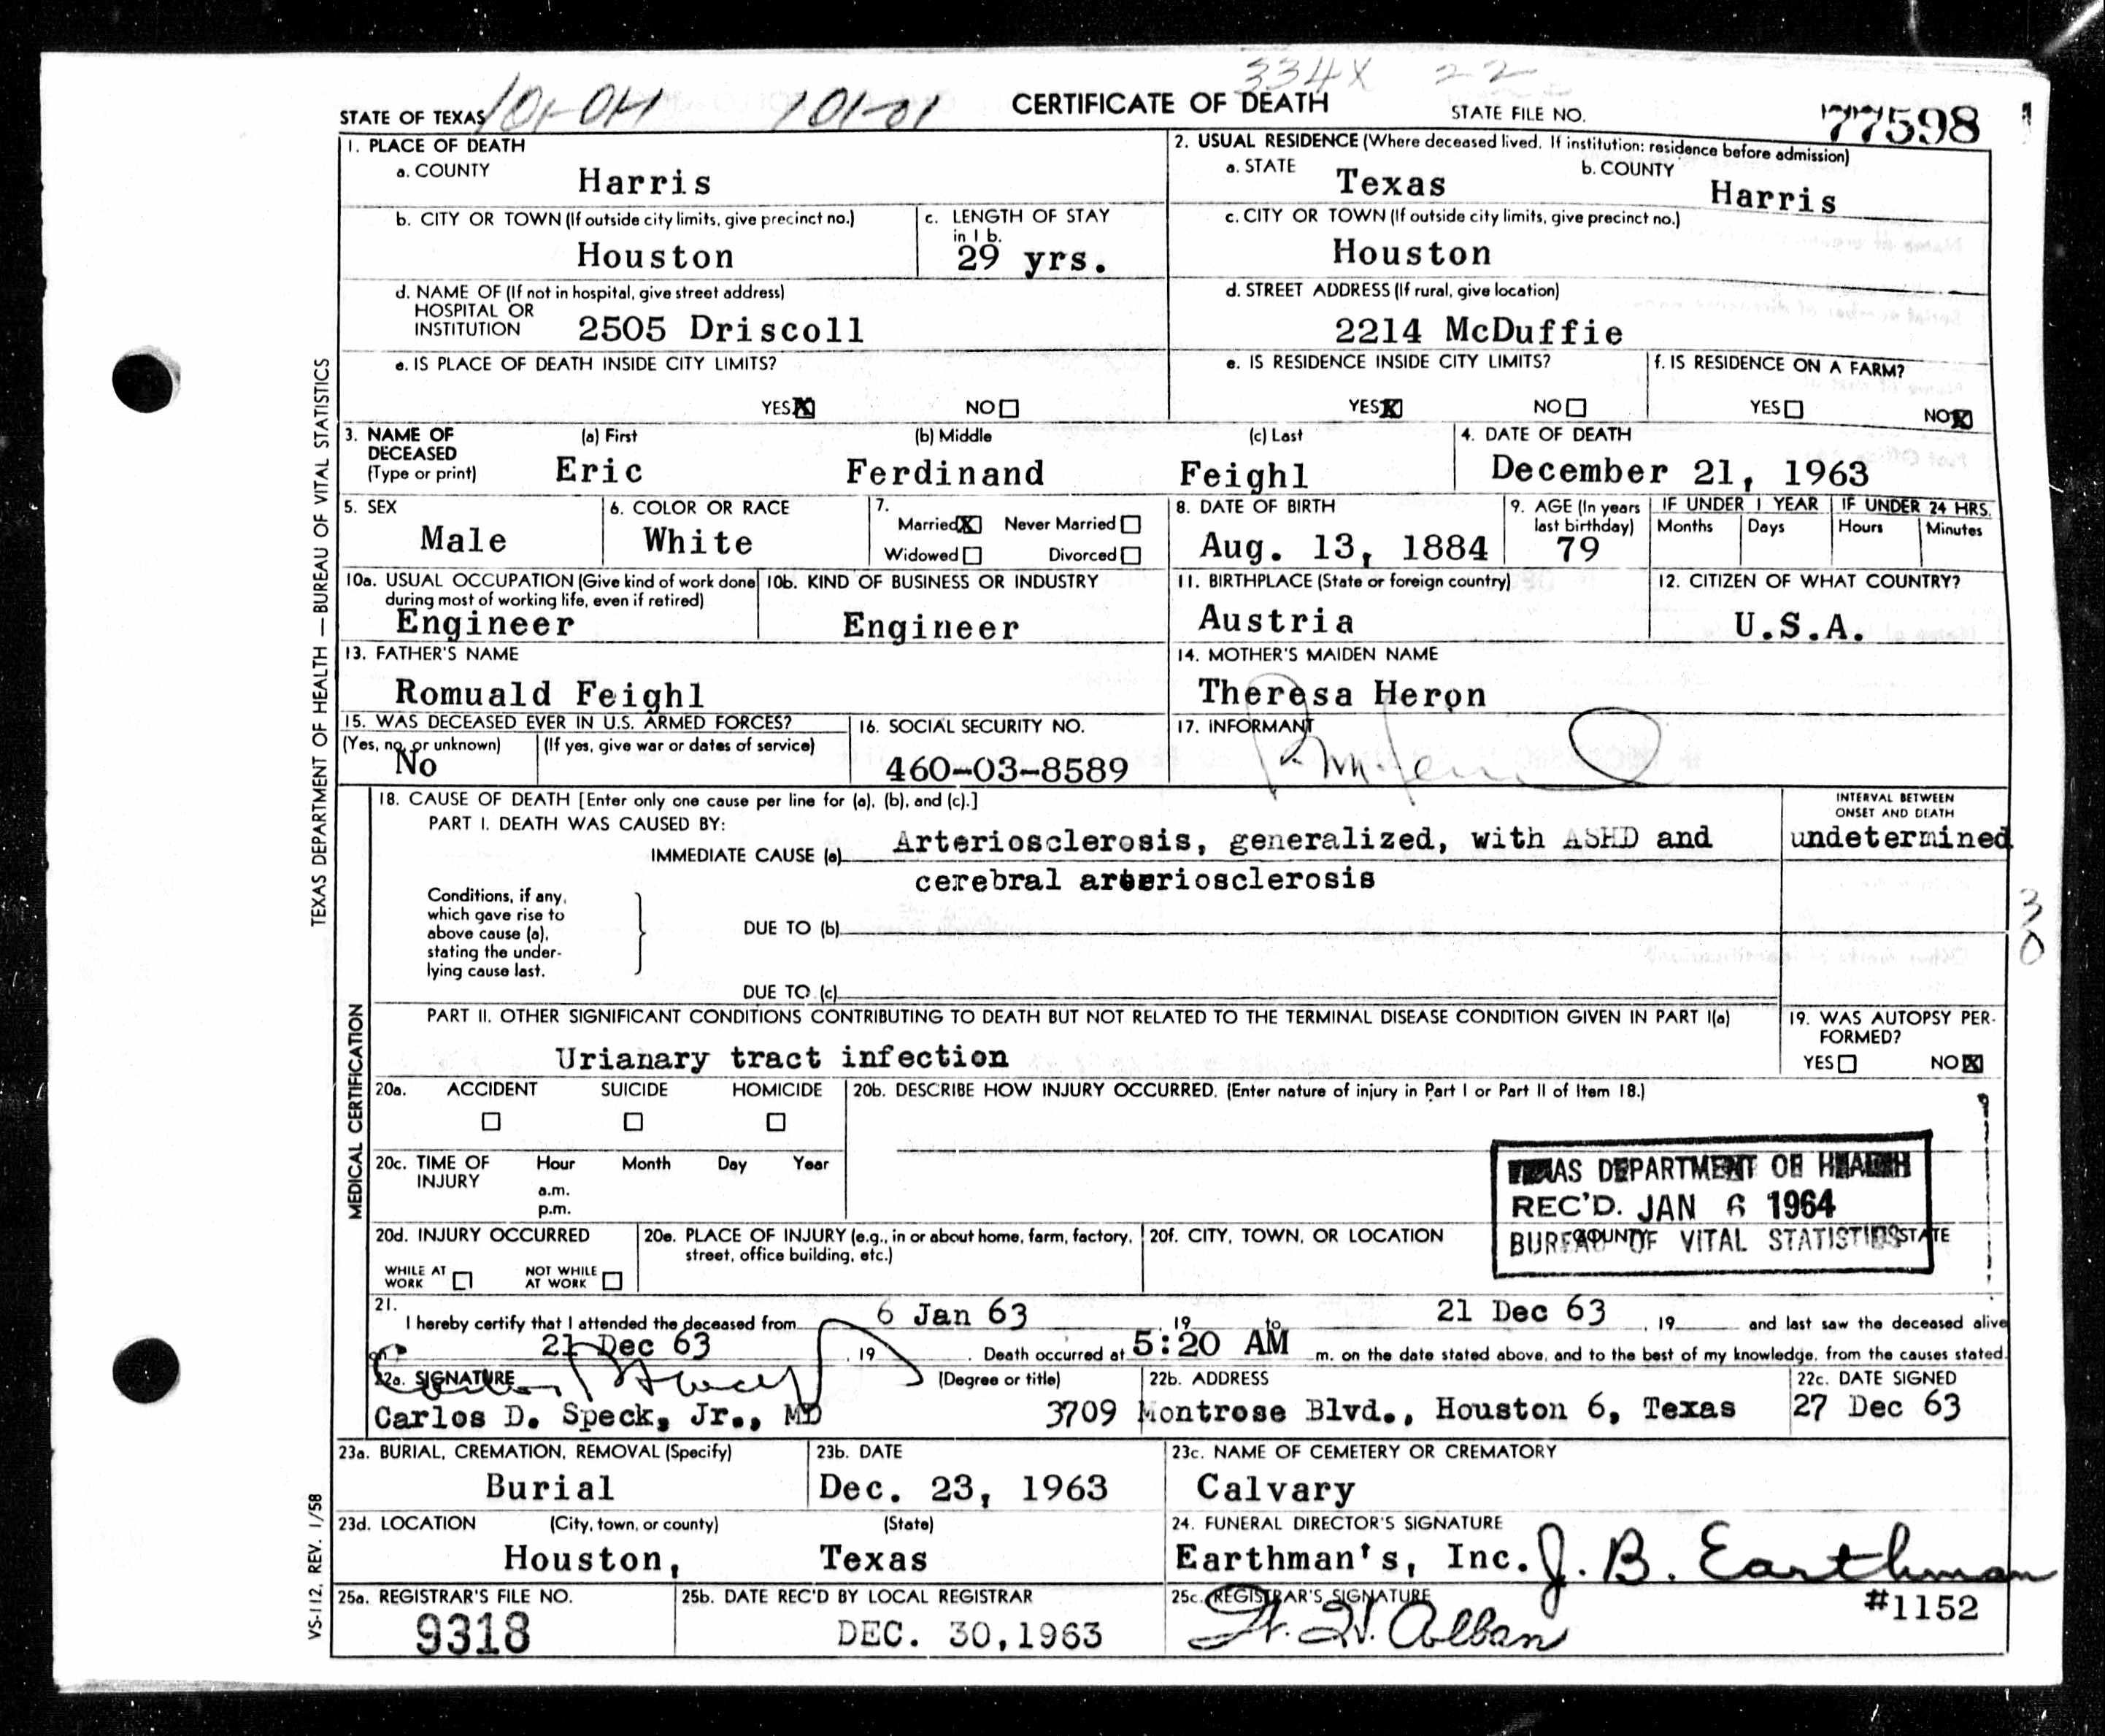 334X 22
STATE OF TEXAS 101-04 101-01 CERTIFICATE OF DEATH STATE FILE NO. 77598
1. PLACE OF DEATH
a. COUNTY Harris
2. USUAL RESIDENCE (Where deceased lived. If institution: residence before admission)
a. STATE Texas b. COUNTY Harris
b. CITY OR TOWN (If outside city limits, give precinct no.) Houston
c. LENGTH OF STAY in 1 b. 29 yrs.
c. CITY OR TOWN (If outside city limits, give precinct no.) Houston
d. NAME OF (If not in hospital, give street address)
HOSPITAL OR
INSTITUTION 2505 Driscoll
d. STREET ADDRESS (If rural, give location)
2214 McDuffie
e. IS PLACE OF DEATH INSIDE CITY LIMITS?
YES X NO
e. IS RESIDENCE INSIDE CITY LIMITS?
YES X NO
f. IS RESIDENCE ON A FARM?
YES NO X
3. NAME OF DECEASED (Type or print)
(a) First (b) Middle (c) Last
Eric Ferdinand Feighl
4. DATE OF DEATH
December 21, 1963
5. SEX
Male
6. COLOR OR RACE
White
7.
Married X Never Married
Widowed Divorced
8. DATE OF BIRTH
Aug. 13, 1884
9. AGE (In years last birthday)
79
IF UNDER 1 YEAR IF UNDER 24 HRS.
Months Days Hours Minutes
10a. USUAL OCCUPATION (Give kind of work done during most of working life, even if retired)
Engineer
10b. KIND OF BUSINESS OR INDUSTRY
Engineer
11. BIRTHPLACE (State or foreign country)
Austria
12. CITIZEN OF WHAT COUNTRY?
U.S.A.
13. FATHER'S NAME
Romuald Feighl
14. MOTHER'S MAIDEN NAME
Theresa Heron
15. WAS DECEASED EVER IN U.S. ARMED FORCES?
(Yes, no, or unknown) (If yes, give war or dates of service)
No
16. SOCIAL SECURITY NO.
460-03-8589
17. INFORMANT
18. CAUSE OF DEATH [Enter only one cause per line for (a), (b), and (c).]
PART I. DEATH WAS CAUSED BY:
IMMEDIATE CAUSE (a) Arteriosclerosis, generalized, with ASHD and
cerebral arteriosclerosis
INTERVAL BETWEEN ONSET AND DEATH
undetermined
Conditions, if any, which gave rise to above cause (a), stating the under-lying cause last.
DUE TO (b)
DUE TO (c)
30
PART II. OTHER SIGNIFICANT CONDITIONS CONTRIBUTING TO DEATH BUT NOT RELATED TO THE TERMINAL DISEASE CONDITION GIVEN IN PART I(a)
Urianary tract infection
19. WAS AUTOPSY PER-FORMED?
YES NO X
20a. ACCIDENT SUICIDE HOMICIDE
20b. DESCRIBE HOW INJURY OCCURRED. (Enter nature of injury in Part I or Part II of Item 18.)
20c. TIME OF INJURY Hour Month Day Year
a.m.
p.m.
TEXAS DEPARTMENT OF HEALTH
REC'D. JAN 6 1964
BUREAU OF VITAL STATISTICS
20d. INJURY OCCURRED
WHILE AT WORK NOT WHILE AT WORK
20e. PLACE OF INJURY (e.g., in or about home, farm, factory, street, office building, etc.)
20f. CITY, TOWN, OR LOCATION COUNTY STATE
21.
I hereby certify that I attended the deceased from 6 Jan 63, 19 to 21 Dec 63, 19 and last saw the deceased alive
on 21 Dec 63, 19 . Death occurred at 5:20 AM m. on the date stated above, and to the best of my knowledge, from the causes stated.
22a. SIGNATURE (Degree or title)
Carlos D. Speck, Jr., MD
22b. ADDRESS
3709 Montrose Blvd., Houston 6, Texas
22c. DATE SIGNED
27 Dec 63
23a. BURIAL, CREMATION, REMOVAL (Specify)
Burial
23b. DATE
Dec. 23, 1963
23c. NAME OF CEMETERY OR CREMATORY
Calvary
23d. LOCATION (City, town, or county) (State)
Houston, Texas
24. FUNERAL DIRECTOR'S SIGNATURE
Earthman's, Inc. J. B. Earthman
#1152
25a. REGISTRAR'S FILE NO.
9318
25b. DATE REC'D BY LOCAL REGISTRAR
DEC. 30, 1963
25c. REGISTRAR'S SIGNATURE
Alban
TEXAS DEPARTMENT OF HEALTH — BUREAU OF VITAL STATISTICS
MEDICAL CERTIFICATION
VS-112, REV. 1/58